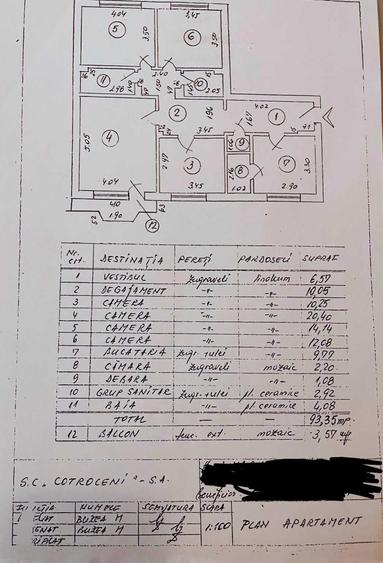 4.04
3.45
5
6
3.50
3.50
3.40
11
10
2.98
1.50
2.05
2
1.96
4.02
1
1.67
4
5.05
3.45
9
2.97
3
8
7
3.30
4.04
3.45
1.02
2.90
1.90
12
Nr. crt. DESTINAȚIA PEREȚI PARDOSELI SUPRAF
1 VESTIBUL zugraveli linoleum 6,57
2 DEGAJAMENT -"- -"- 10,05
3 CAMERA -"- -"- 10,25
4 CAMERA -"- -"- 20,40
5 CAMERA -"- -"- 14,14
6 CAMERA -"- -"- 12,08
7 BUCATARIA zugr. + ulei -"- 9,77
8 CĂMARA zugraveli mozaic 2,20
9 DEBARA -"- -"- 1,08
10 GRUP SANITAR zugr. + ulei pl. ceramice 2,92
11 BAIA -"- pl. ceramice 4,08
TOTAL — — 93,35 mp
12 BALCON tenc. ext. mozaic 3,57 mp
S.C. COTROCENI - S.A.
beneficiar
NUMELE SEMNATURA SCARA
BUZEA M 1:100 PLAN APARTAMENT
BUZEA M